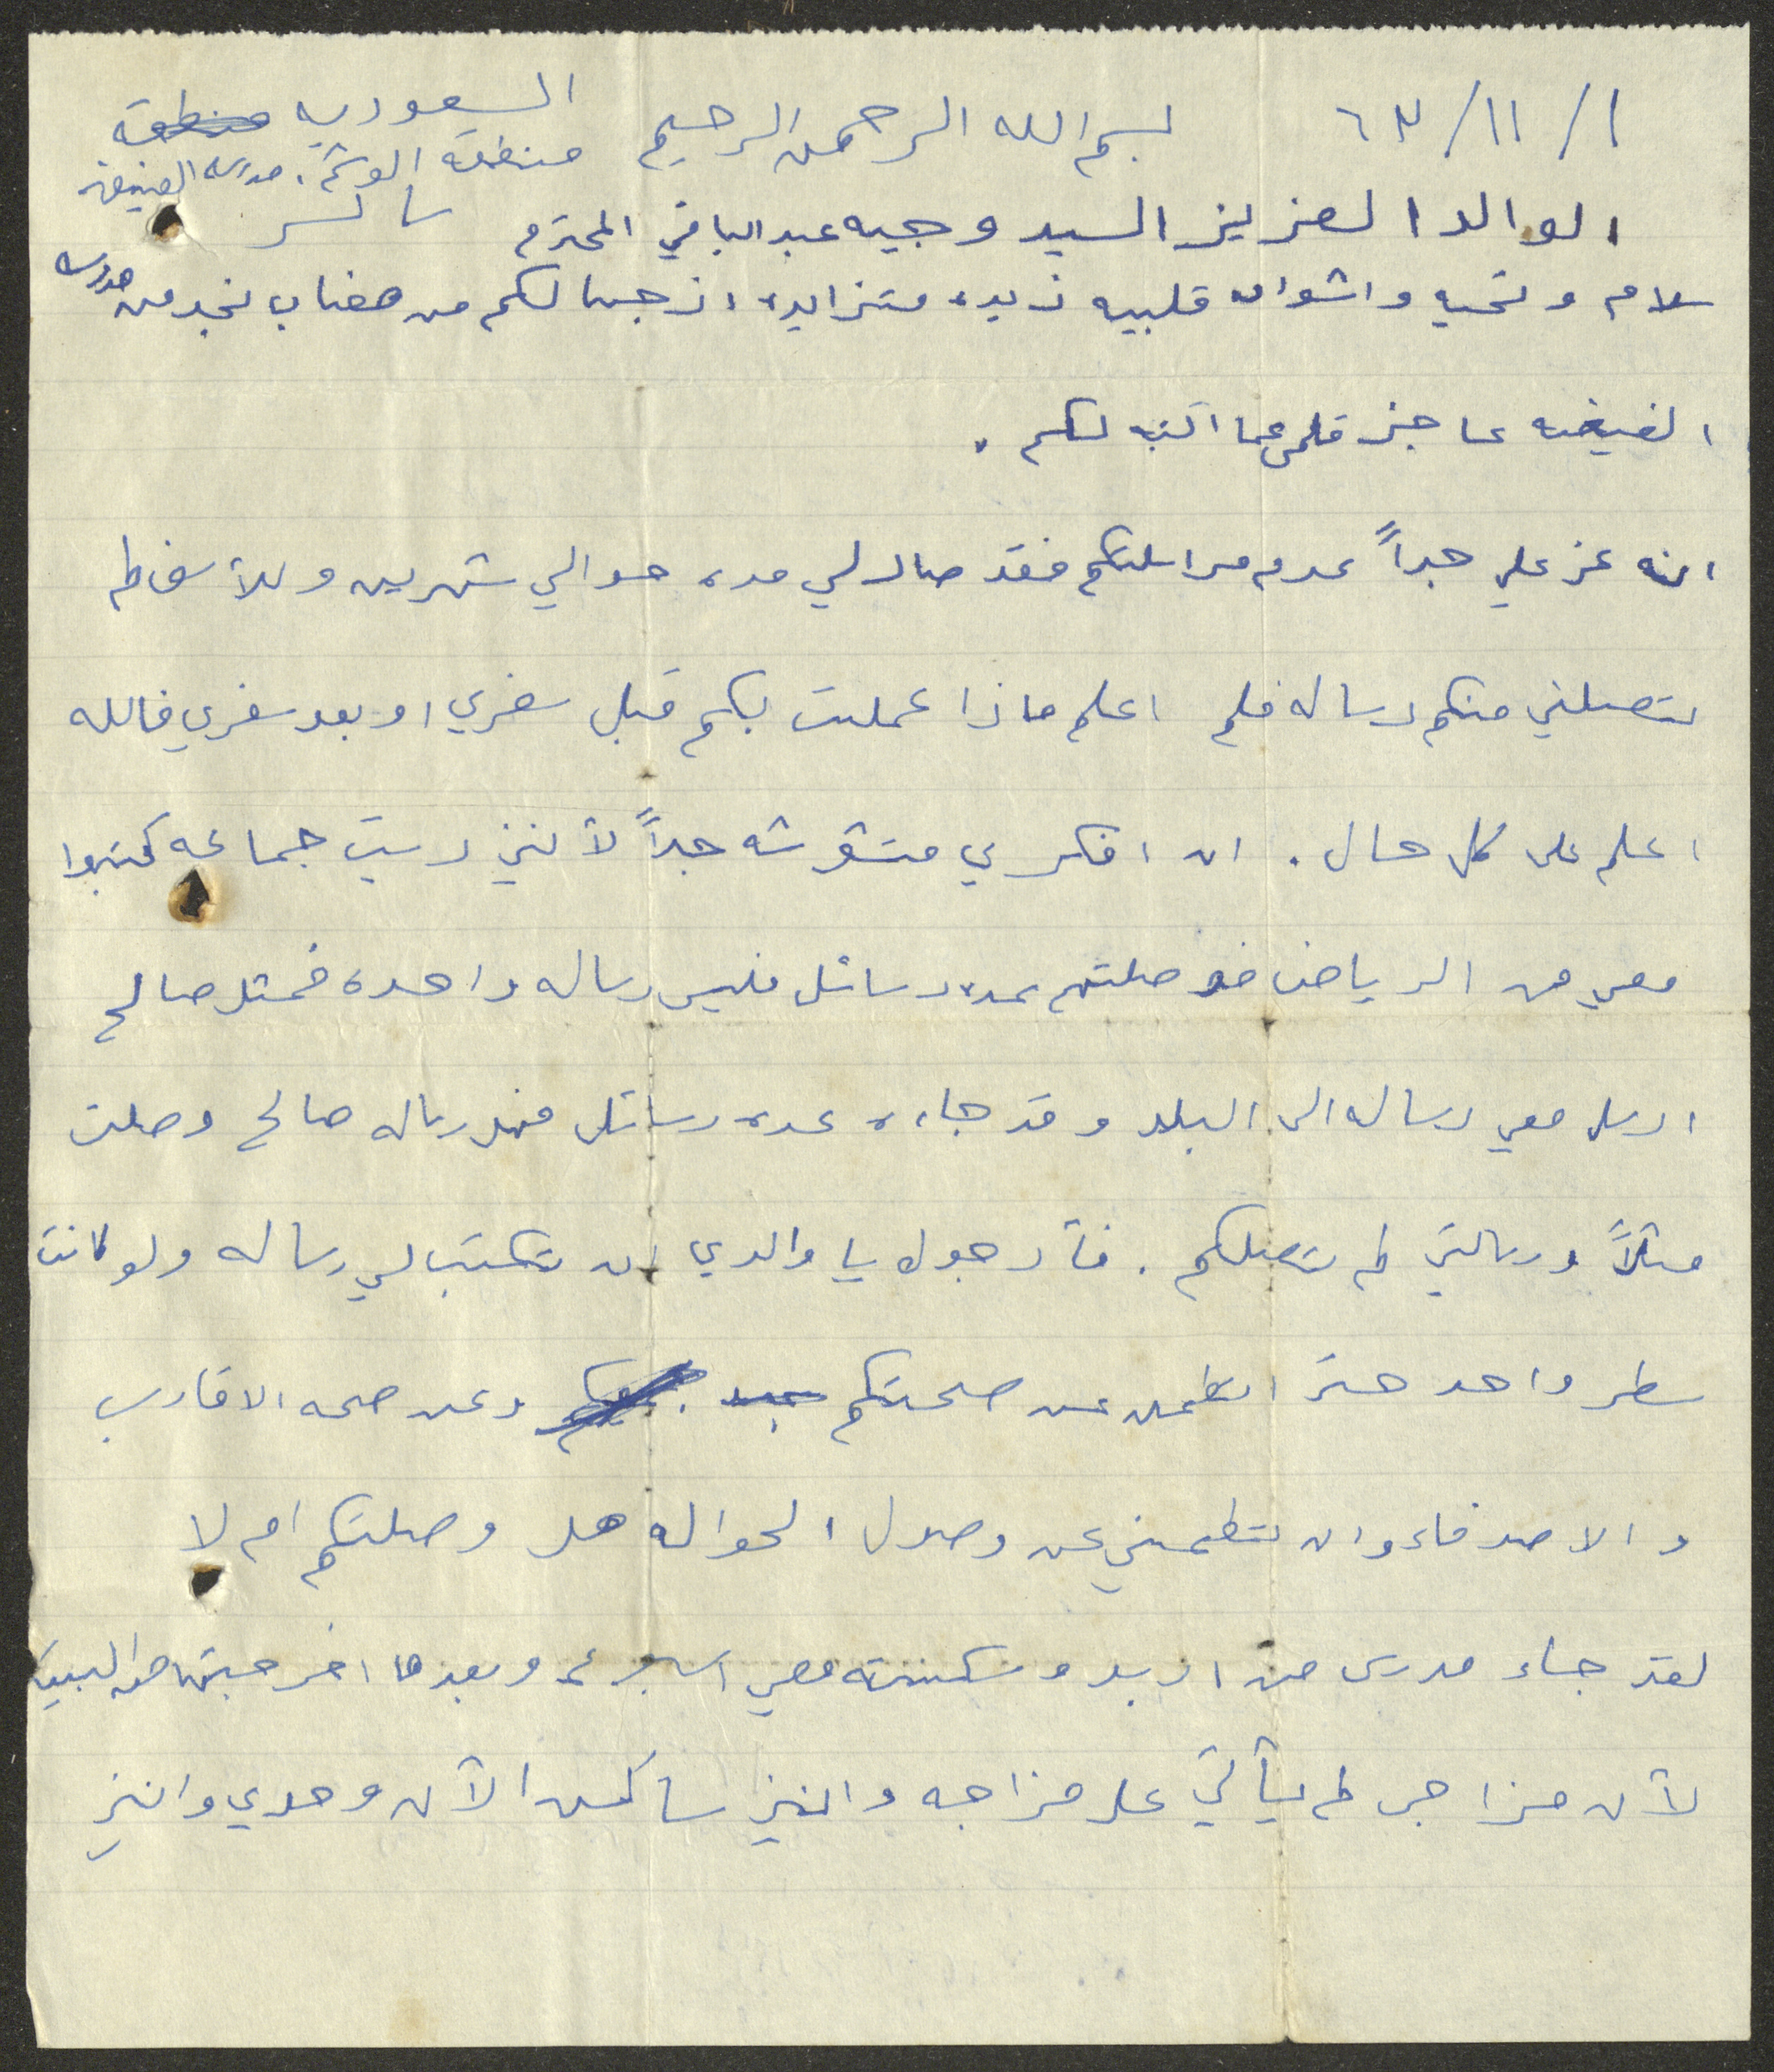 ١ / ١١ / ٦٣
بسم الله الرحمن الرحيم
السعوديه منطقه
منطقه الوشم . مدرسه الفيضه
ساكر
الوالد العزيز السيد وجيه عبد الباقي المحترم
سلام وتحيه واشواق قلبيه زيده متزايده ازجيها لكم من هضاب نجد من مدرسه
الفيضه عاجز قلمي عما اكتبه لكم .
انه عز علي جداً عدم مراسلتكم فقد صار لي مده حوالي شهرين وللأسف لم
تصلني منكم رساله فلم اعلم ماذا عملت بكم قبل سفري او بعد سفري فالله
اعلم على كل حال . ان افكاري مشوشه جداً لأنني رأيت جماعه كتبوا
معي من الرياض فوصلتهم عده رسائل فليس رساله واحده فمثل صالح
ارسل معي رساله الى البلد وقد جاءه عده رسائل فهل رساله صالح وصلت
مثلاً ورسالتي لم تصلكم . فأرجوك يا والدي ان تكتب لي رساله ولو كانت
سطر واحد حتى اتطمن عن صحتكم وعن صحه الاقارب
والاصدقاء وان تطمني عن وصول الحواله هل وصلتكم ام لا
لقد جاء مدرس من اربد وسكنته معي اسبوع وبعدها اخرجته من البيت
لأن مزاجي لم يأتي على مزاجه وانني ساكن الآن وحدي وانني